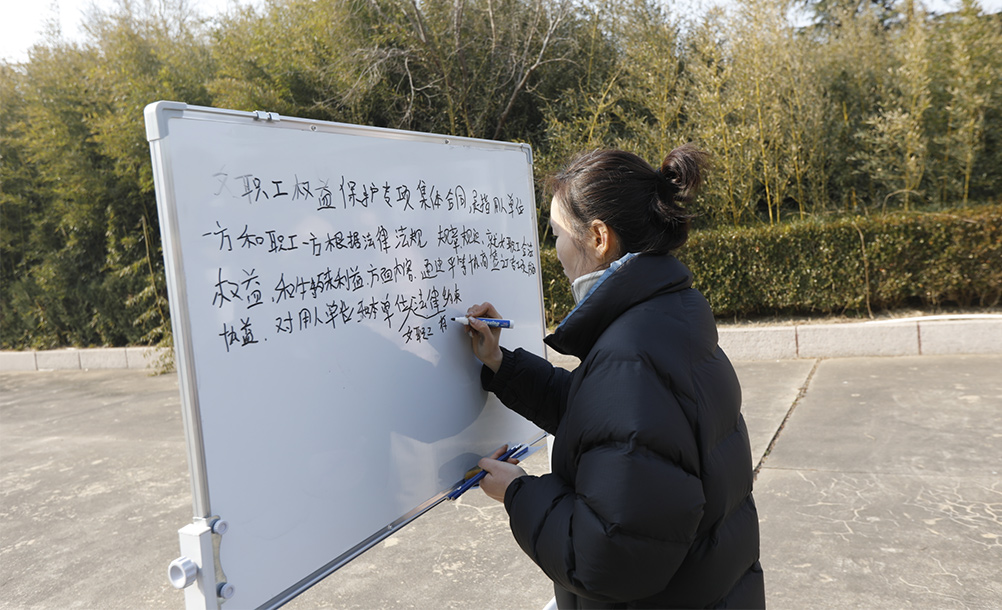 女职工权益保护专项集体合同,是指用人单位
一方和职工一方根据法律法规 规章规定,就女职工合法
权益,和特殊利益方面内容,通过平等协商签订专项
权益.对用人单位和本单位 法律约束
女职工 有